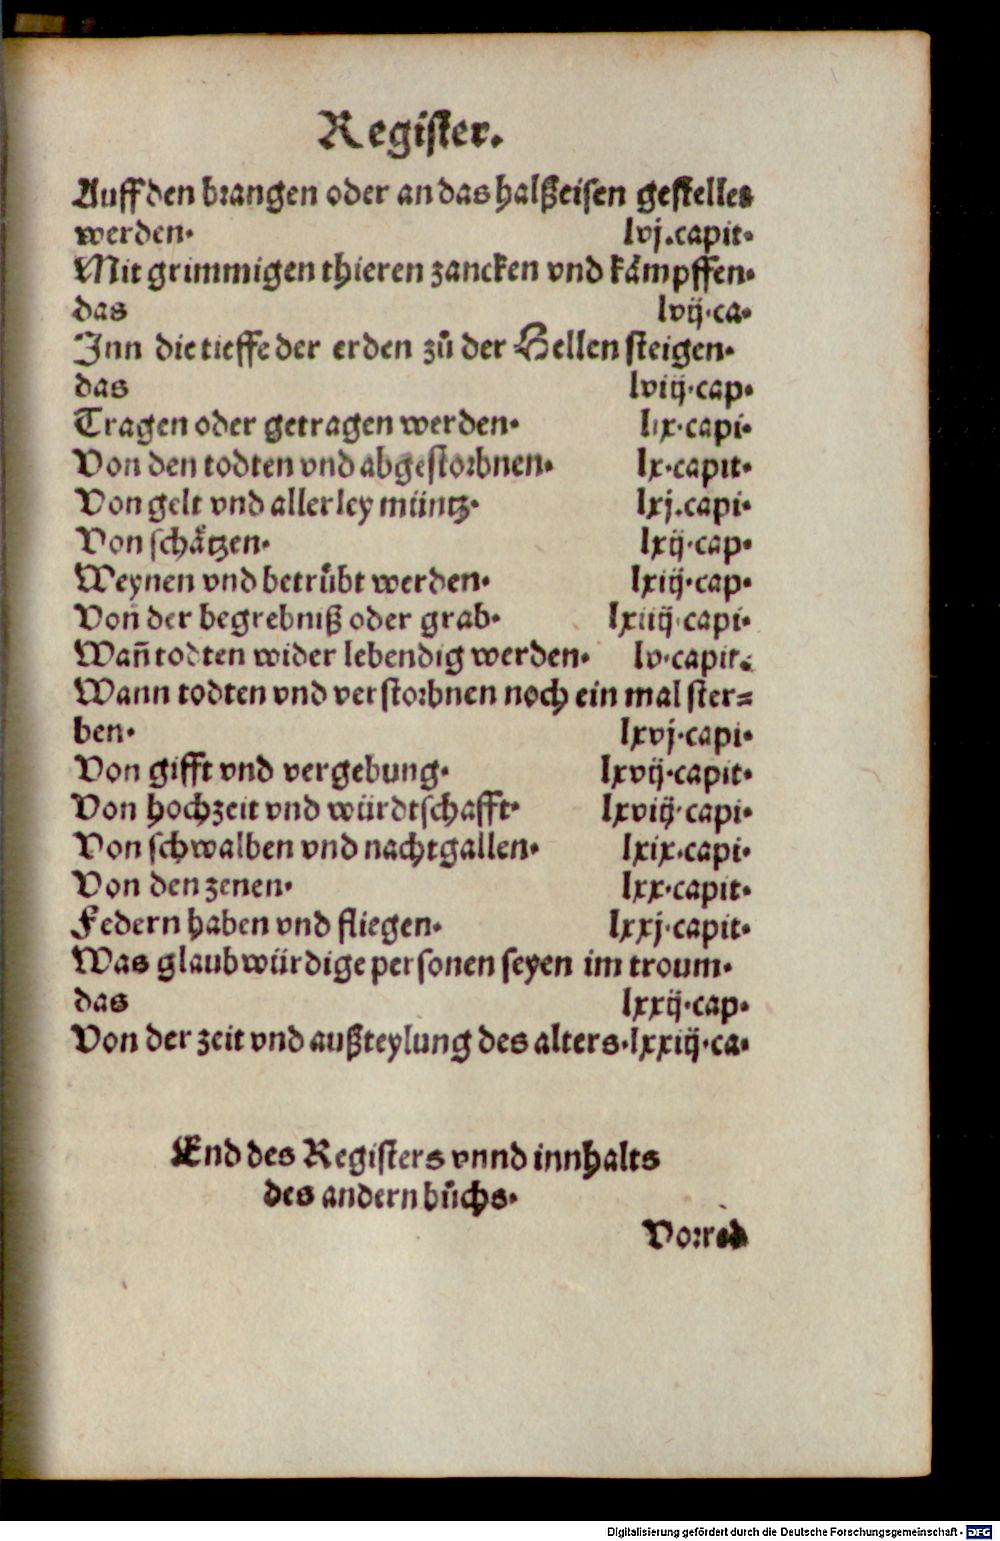 Register.
Auff den brangen oder an das halßeisen gestellet
werden. lvj.capit.
Mit grimmigen thieren zancken vnd kämpffen.
das lvij.ca.
Inn die tieffe der erden zů der Hellen steigen.
das lviij.cap.
Tragen oder getragen werden. lix.capi.
Von den todten vnd abgestorbnen. lx.capit.
Von gelt vnd allerley müntz. lxj.capi.
Von schätzen. lxij.cap.
Weynen vnd betrůbt werden. lxiij.cap.
Von der begrebniß oder grab. lxiiij.capi.
Wañ todten wider lebendig werden. lv.capit.
Wann todten vnd verstorbnen noch ein mal ster=
ben. lxvj.capi.
Von gifft vnd vergebung. lxvij.capit.
Von hochzeit vnd würdtschafft. lxviij.capi.
Von schwalben vnd nachtgallen. lxix.capi.
Von den zenen. lxx.capit.
Federn haben vnd fliegen. lxxj.capit.
Was glaubwürdige personen seyen im troum.
das lxxij.cap.
Von der zeit vnd außteylung des alters.lxxiij.ca.
End des Registers vnnd innhalts
des andern bůchs.
Vorred
Digitalisierung gefördert durch die Deutsche Forschungsgemeinschaft - DFG